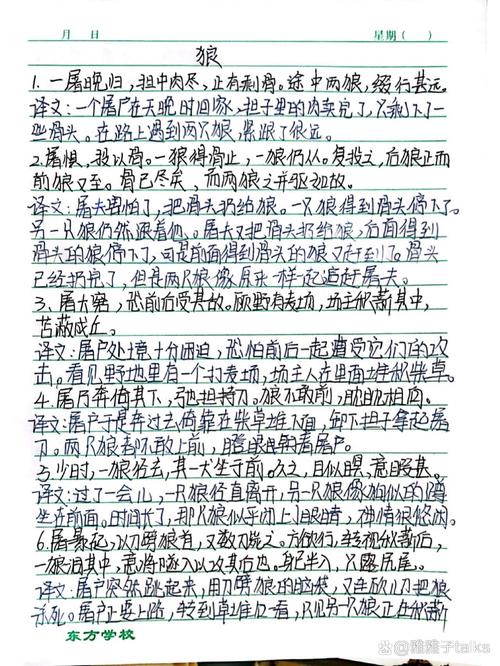 月 日 星期( )
狼
1. 一屠晚归,担中肉尽,止有剩骨。途中两狼,缀行甚远。
译文:一个屠户在天晚时回家,担子里的肉卖完了,只剩下一
些骨头。在路上遇到两只狼,紧跟了很远。
2.屠惧,投以骨。一狼得骨止,一狼仍从。复投之,后狼止而
前狼又至。骨已尽矣,而两狼之并驱如故。
译文:屠夫害怕了,把骨头扔给狼。一只狼得到骨头停下了。
另一只狼仍然跟着他。屠夫又把骨头扔给狼,后面得到
骨头的狼停下了,可是前面得到骨头的狼又赶到了。骨头
已经扔完了,但是两只狼像原来一样一起追赶屠夫。
3、屠大窘,恐前后受其敌。顾野有麦场,场主积薪其中,
苫蔽成丘。
译文:屠户处境十分困迫,恐怕前后一起遭受它们的攻
击。看见野地里有一个打麦场,场主人在里面堆积柴草。
4.屠乃奔倚其下,弛担持刀。狼不敢前,眈眈相向。
译文:屠户于是奔过去倚靠在柴草堆下面,卸下担子拿起屠
刀。两只狼都不敢上前,瞪着屠户。
5.少时,一狼径去,其一犬坐于前。久之,目似瞑,意暇甚。
译文:过了一会儿,一只狼径直离开,另一只狼像狗似的蹲
坐在前面。时间长了,那只狼似乎闭上了眼睛,神情很悠闲。
6.屠暴起,以刀劈狼首,又数刀毙之。方欲行,转视积薪后,
一狼洞其中,意将隧入以攻其后也。身已半入,只露尻尾。
译文:屠户突然跳起来,用刀劈狼的脑袋,又连砍几刀把狼
杀死。屠户正要上路,转到草堆后一看,只见另一只狼正在积薪
东方学校
雅雅子talks